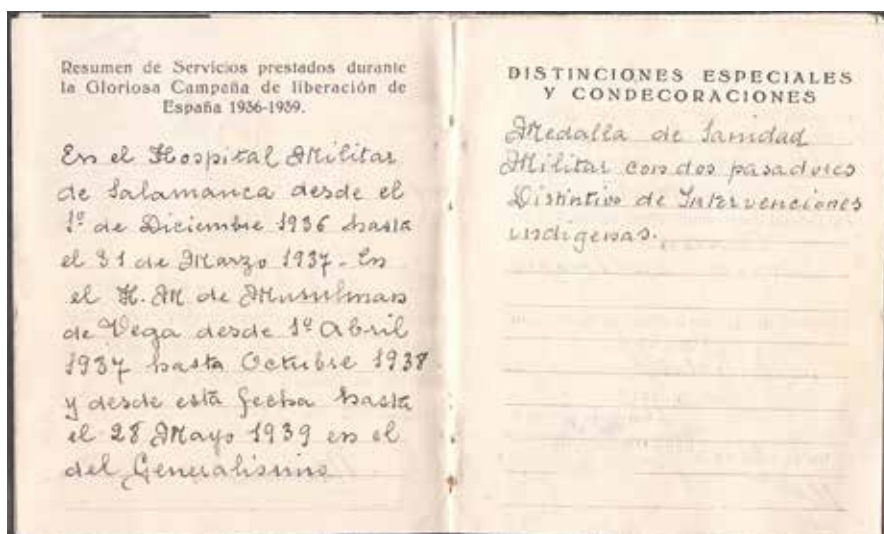 Resumen de Servicios prestados durante
la Gloriosa Campaña de liberación de
España 1936-1939.
En el Hospital Militar
de Salamanca desde el
1º de Diciembre 1936 hasta
el 31 de Marzo 1937 - En
el H. M de Musulman
de Vega desde 1º Abril
1937 hasta Octubre 1938
y desde esta fecha hasta
el 28 Mayo 1939 en el
del Generalisimo
DISTINCIONES ESPECIALES
Y CONDECORACIONES
Medalla de Sanidad
Militar con dos pasadores
Distintivo de Intervenciones
indigenas.